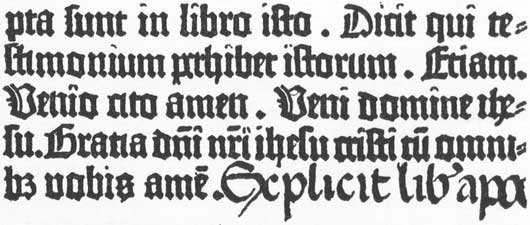 pta sunt in libro isto . Dicit qui te-
stimonium perhibet istorum . Etiam.
Venio cito amen . Veni domine ihe-
su. Gratia dñi nr̃i ihesu cristi cũ omni-
bꝫ vobis amẽ. Explicit lib' apo